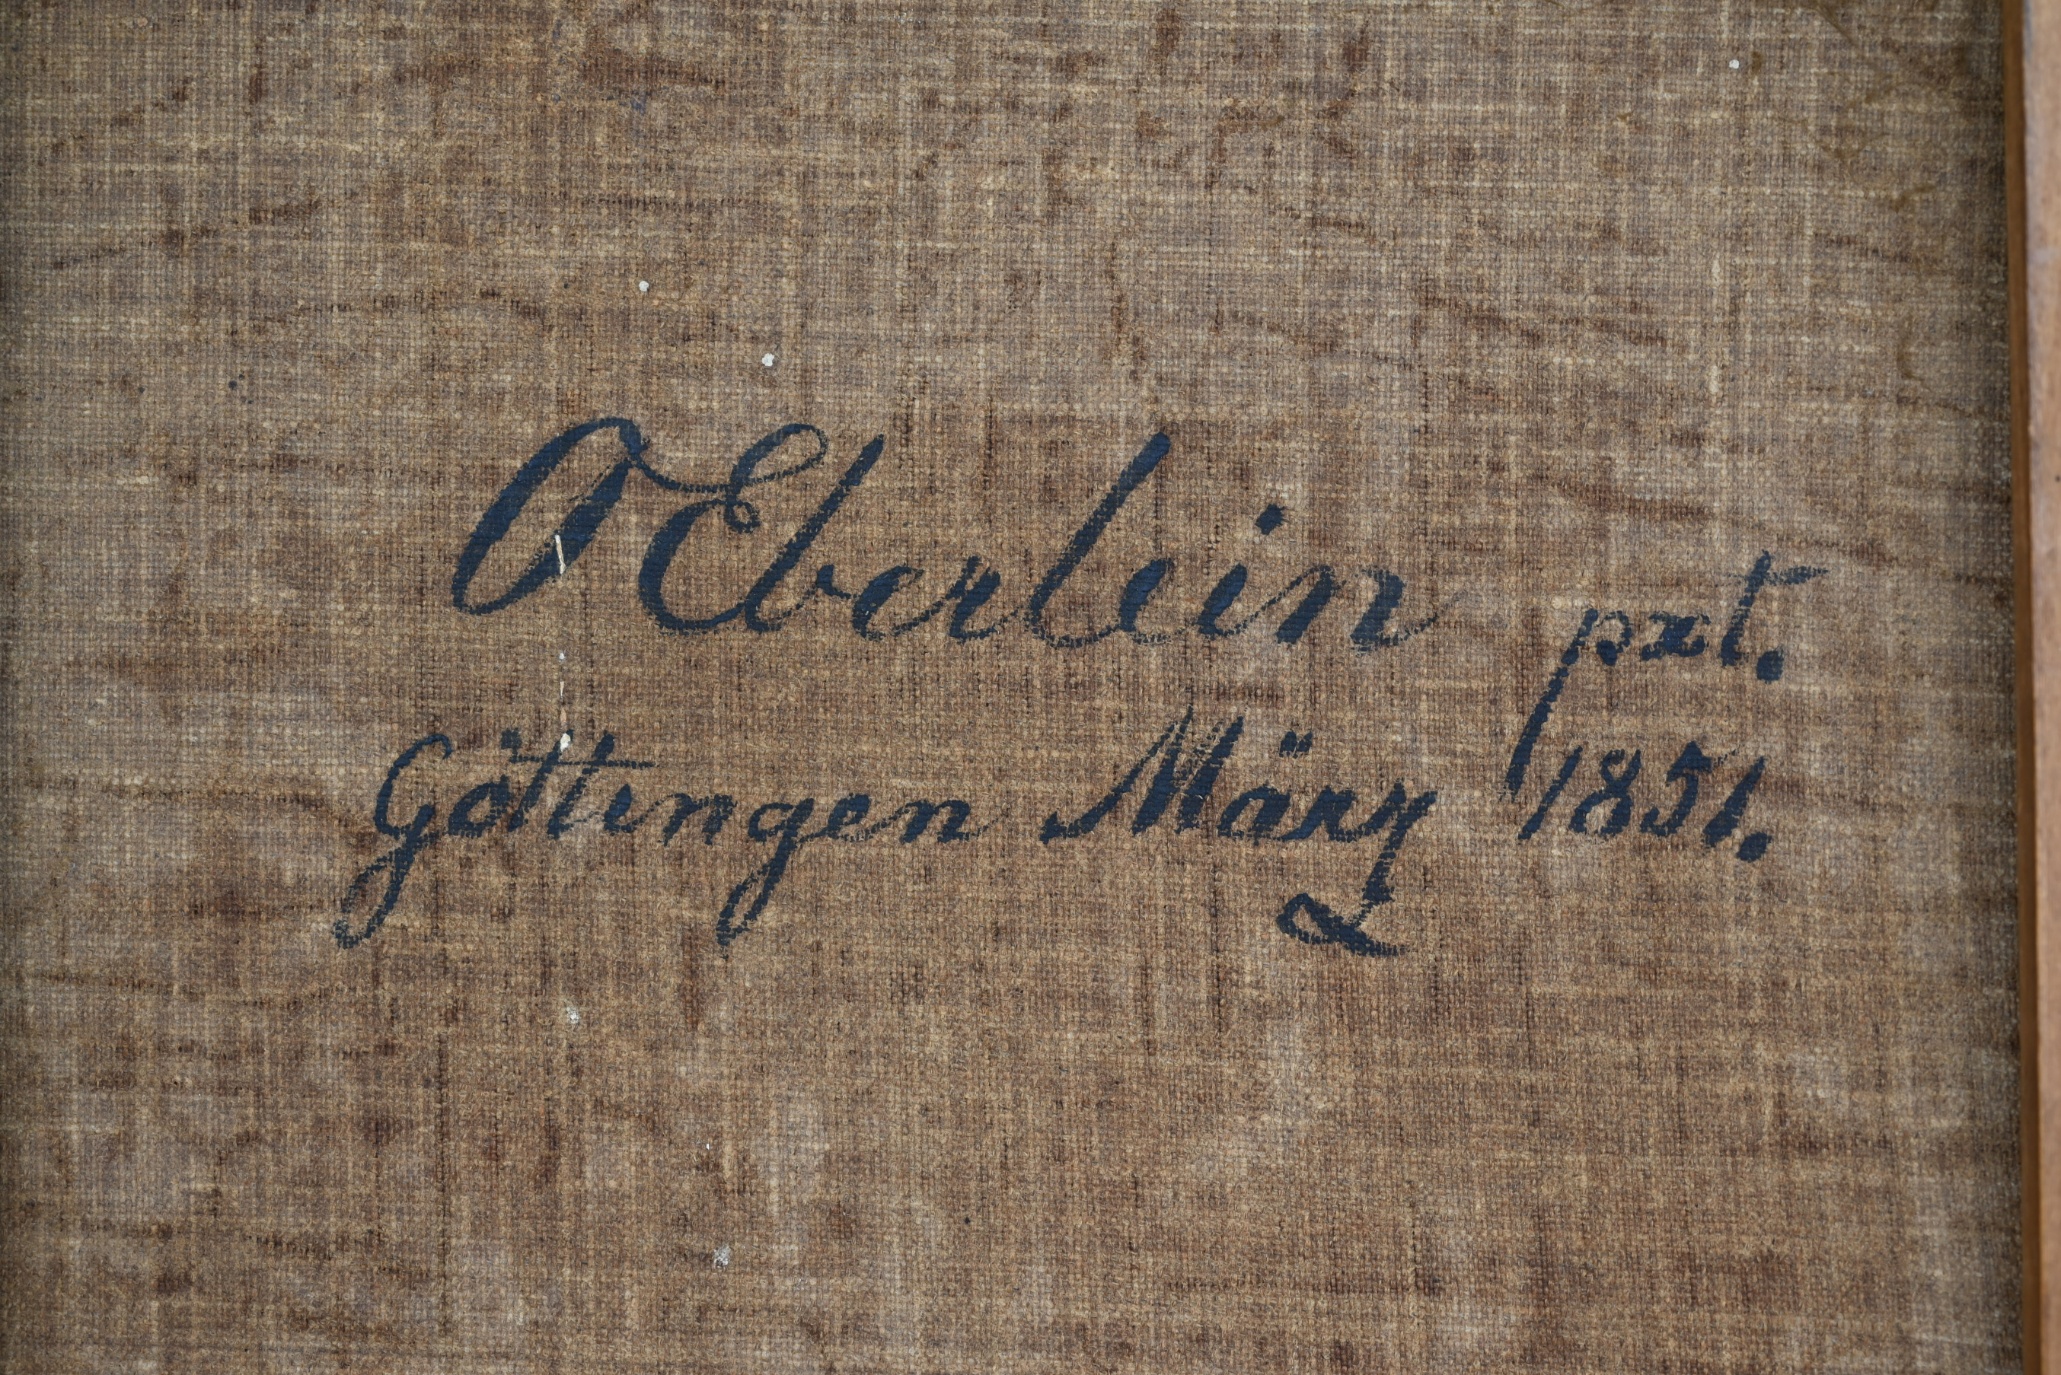 O Eberlein pxt.
Göttingen März 1851.